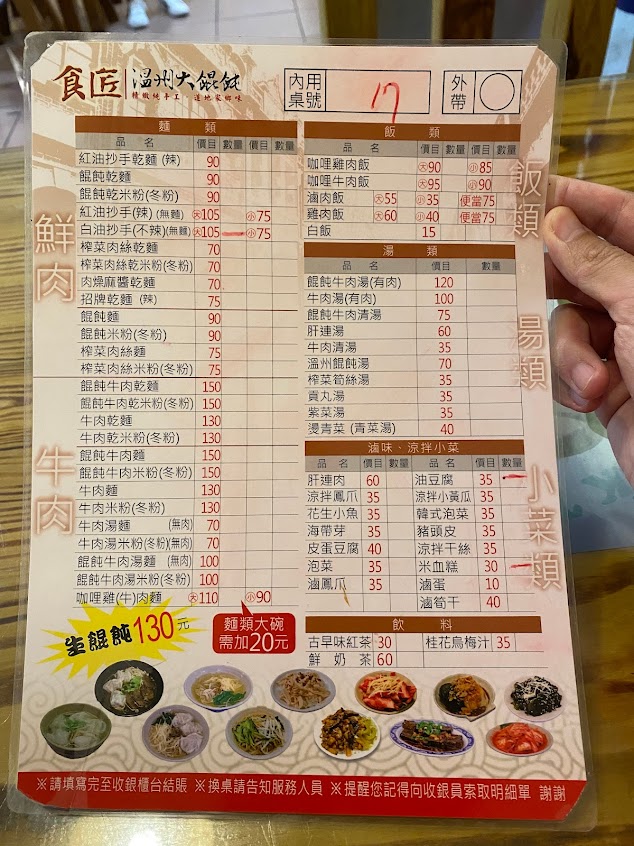 食匠 溫州大餛飩
精緻純手工 道地家鄉味
內用桌號 17 外帶
鮮肉
牛肉
飯類
湯類
小菜類
麵 類
品 名 價目 數量 價目 數量
紅油抄手乾麵(辣) 90
餛飩乾麵 90
餛飩乾米粉(冬粉) 90
紅油抄手(辣)(無麵) 大105 小75
白油抄手(不辣)(無麵) 大105 小75
榨菜肉絲乾麵 70
榨菜肉絲乾米粉(冬粉) 70
肉燥麻醬乾麵 70
招牌乾麵 (辣) 75
餛飩麵 90
餛飩米粉(冬粉) 90
榨菜肉絲麵 75
榨菜肉絲米粉(冬粉) 75
餛飩牛肉乾麵 150
餛飩牛肉乾米粉(冬粉) 150
牛肉乾麵 130
牛肉乾米粉(冬粉) 130
餛飩牛肉麵 150
餛飩牛肉米粉(冬粉) 150
牛肉麵 130
牛肉米粉(冬粉) 130
牛肉湯麵 (無肉) 70
牛肉湯米粉(冬粉)(無肉) 70
餛飩牛肉湯麵 (無肉) 100
餛飩牛肉湯米粉(冬粉) 100
咖哩雞(牛)肉麵 大110 小90
飯 類
品 名 價目 數量 價目 數量
咖哩雞肉飯 大90 小85
咖哩牛肉飯 大95 小90
滷肉飯 大55 小35 便當75
雞肉飯 大60 小40 便當75
白飯 15
湯 類
品 名 價目 數量
餛飩牛肉湯(有肉) 120
牛肉湯(有肉) 100
餛飩牛肉清湯 75
肝連湯 60
牛肉清湯 35
溫州餛飩湯 70
榨菜筍絲湯 35
貢丸湯 35
紫菜湯 35
燙青菜 (青菜湯) 40
滷味、涼拌小菜
品 名 價目 數量 品 名 價目 數量
肝連肉 60 油豆腐 35
涼拌鳳爪 35 涼拌小黃瓜 35
花生小魚 35 韓式泡菜 35
海帶芽 35 豬頭皮 35
皮蛋豆腐 40 涼拌干絲 35
泡菜 35 米血糕 30
滷鳳爪 35 滷蛋 10
滷筍干 40
飲 料
古早味紅茶 30 桂花烏梅汁 35
鮮奶茶 60
生餛飩130元
麵類大碗
需加20元
※請填寫完至收銀櫃台結賬 ※換桌請告知服務人員 ※提醒您記得向收銀員索取明細單 謝謝